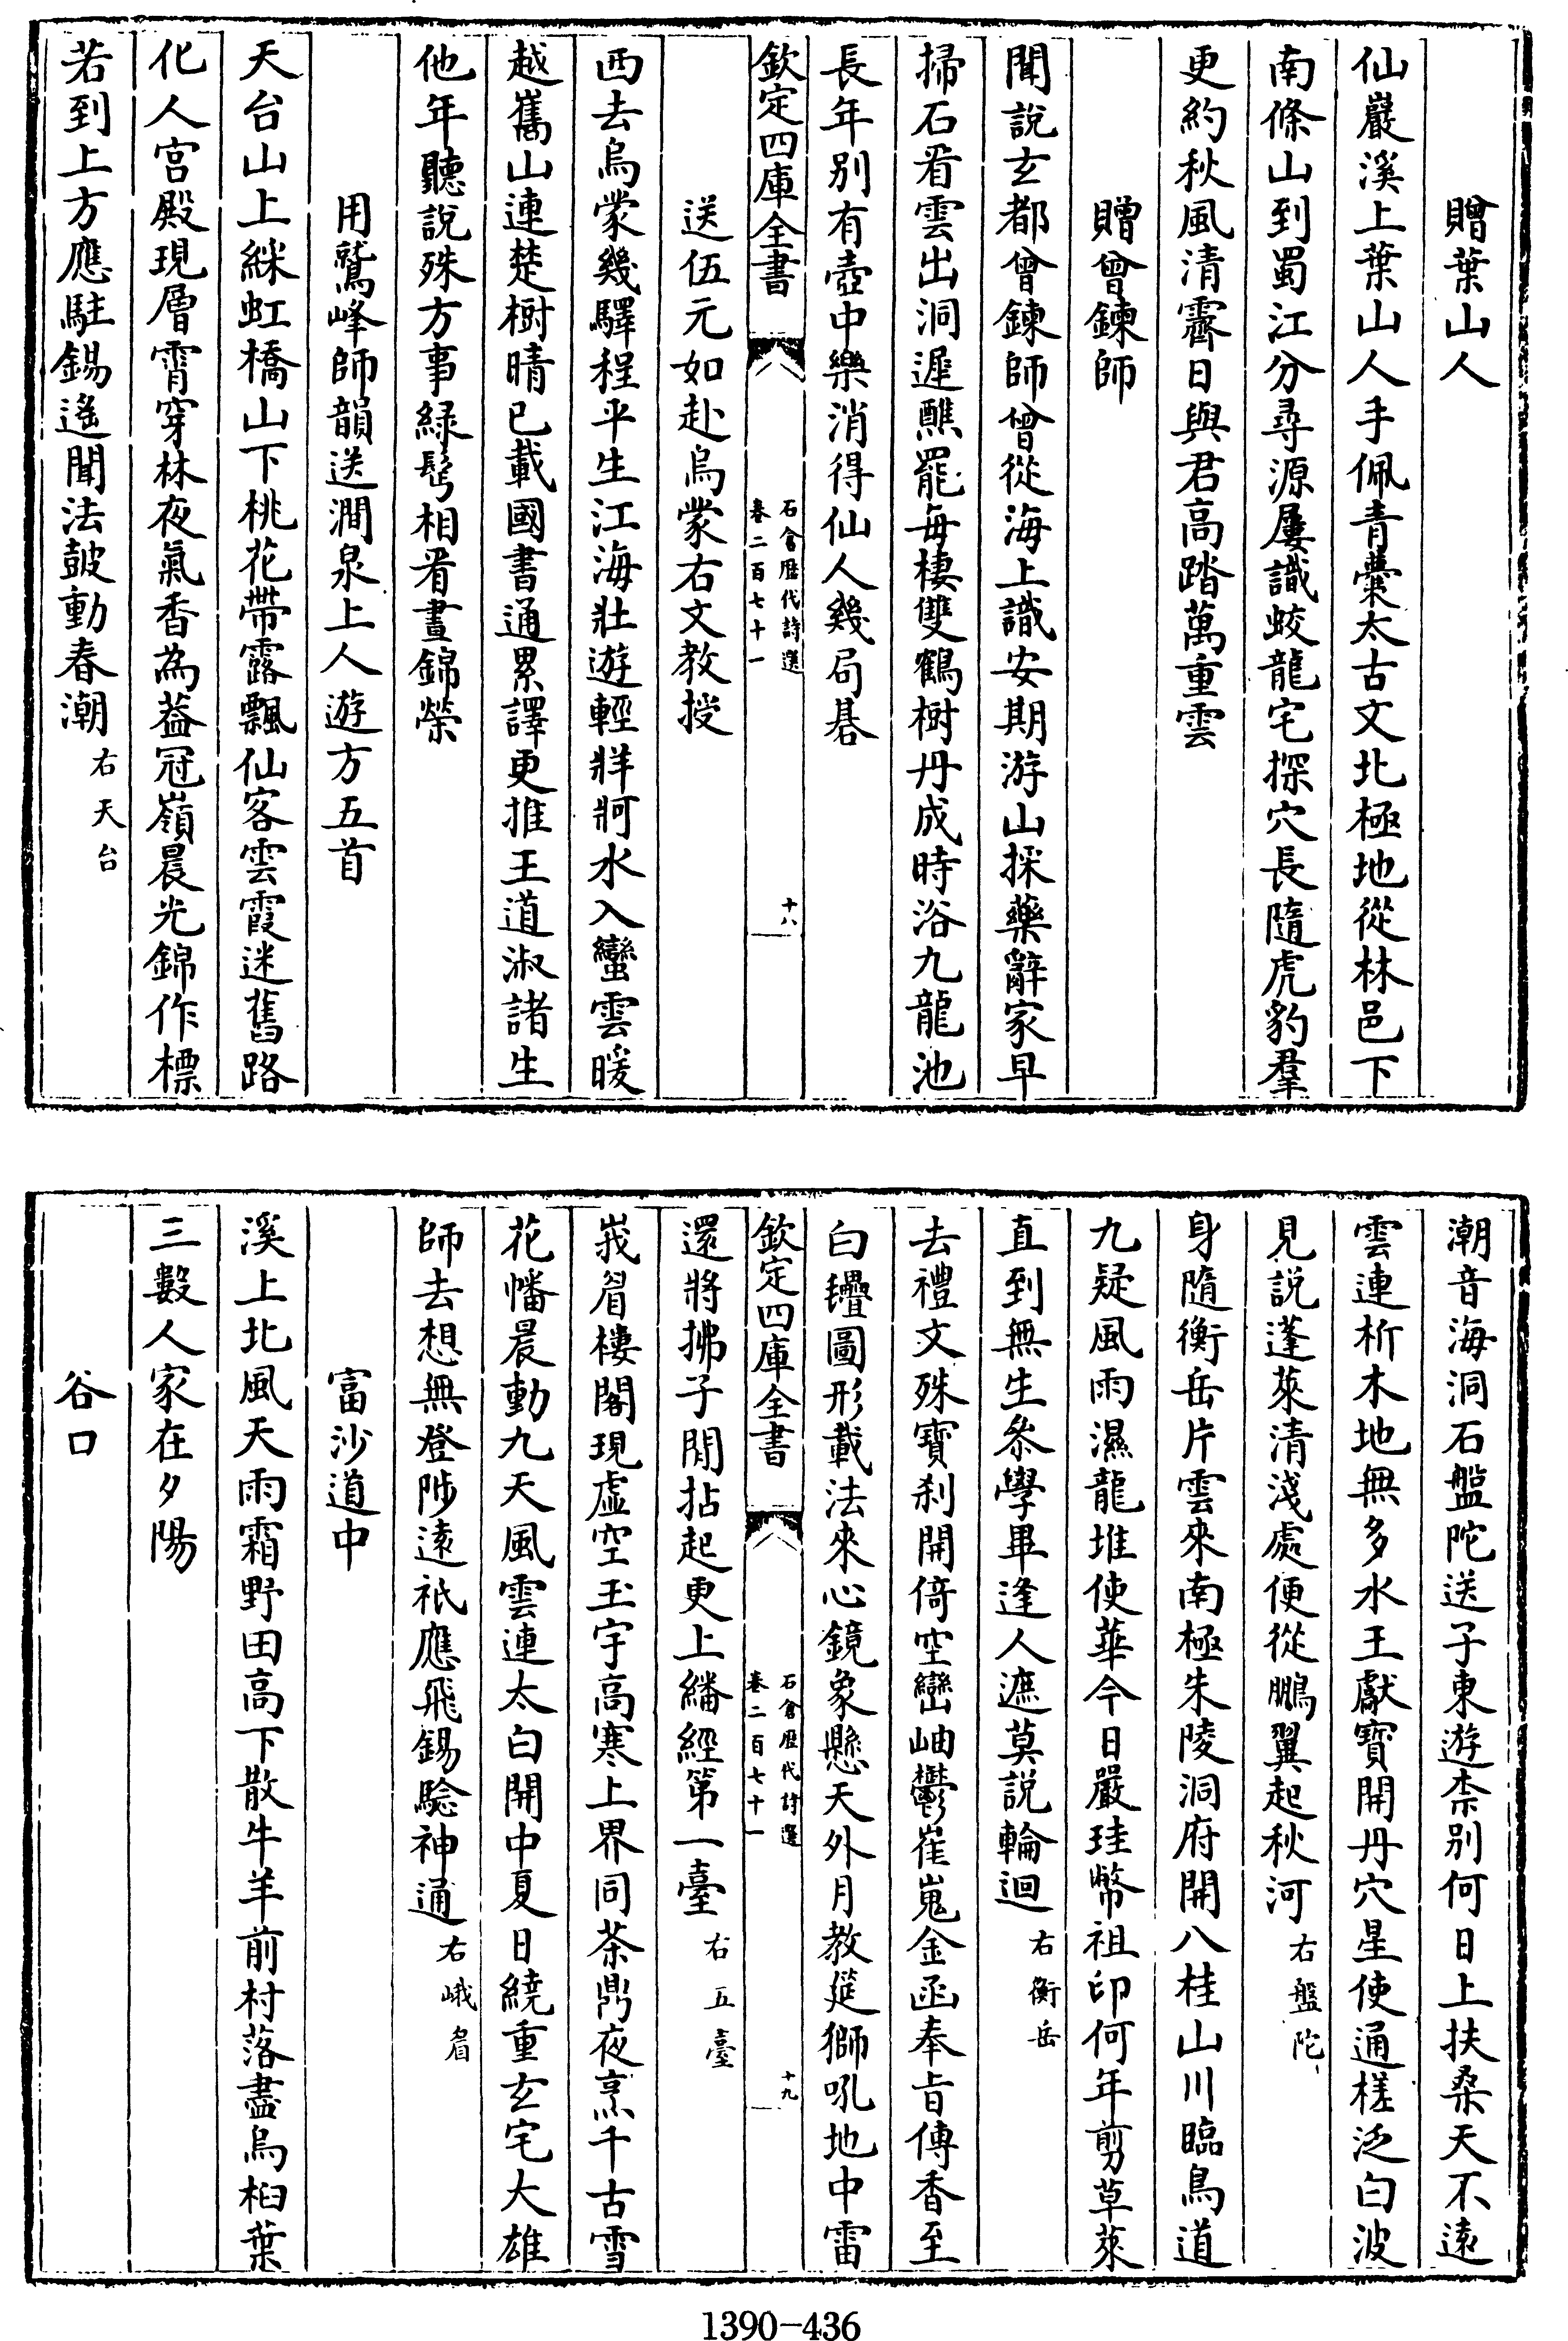 贈葉山人
仙巖溪上葉山人手佩青囊太古文北極地從林邑下
南條山到蜀江分尋源屢識蛟龍宅探穴長隨虎豹羣
更約秋風清霽日與君高踏萬重雲
贈曾鍊師
聞說玄都曾鍊師曾從海上識安期游山採藥辭家早
掃石看雲出洞遲醮罷每棲雙鶴樹丹成時浴九龍池
長年別有壺中樂消得仙人幾局碁
欽定四庫全書
石倉歷代詩選
卷二百七十一
十八
送伍元如赴烏蒙右文教授
西去烏蒙幾驛程平生江海壯遊輕牂牁水入蠻雲暖
越嶲山連楚樹晴已載國書通累譯更推王道淑諸生
他年聽說殊方事綠髩相看晝錦榮
用鷲峰師韻送澗泉上人遊方五首
天台山上綵虹橋山下桃花帶露飄仙客雲霞迷舊路
化人宮殿現層霄穿林夜氣香為葢冠嶺晨光錦作標
若到上方應駐錫遙聞法鼓動春潮右天台
潮音海洞石盤陀送子東遊柰別何日上扶桑天不遠
雲連析木地無多水王獻寶開丹穴星使通槎泛白波
見說蓬萊清淺處便從鵬翼起秋河右盤陀
身隨衡岳片雲來南極朱陵洞府開八桂山川臨鳥道
九疑風雨濕龍堆使華今日嚴珪幣祖印何年剪草萊
直到無生叅學畢逢人遮莫說輪迴右衡岳
去禮文殊寶刹開倚空巒岫鬱崔嵬金函奉旨傳香至
白㲲圖形載法來心鏡象懸天外月教筵獅吼地中雷
欽定四庫全書
石倉歷代詩選
卷二百七十一
十九
還將拂子閒拈起更上繙經第一臺右五臺
峩眉樓閣現虛空玉宇高寒上界同茶鼎夜烹千古雪
花幡晨動九天風雲連太白開中夏日繞重玄宅大雄
師去想無登陟遠祇應飛錫騐神通右峨眉
富沙道中
溪上北風天雨霜野田高下散牛羊前村落盡烏桕葉
三數人家在夕陽
谷口
1390-436